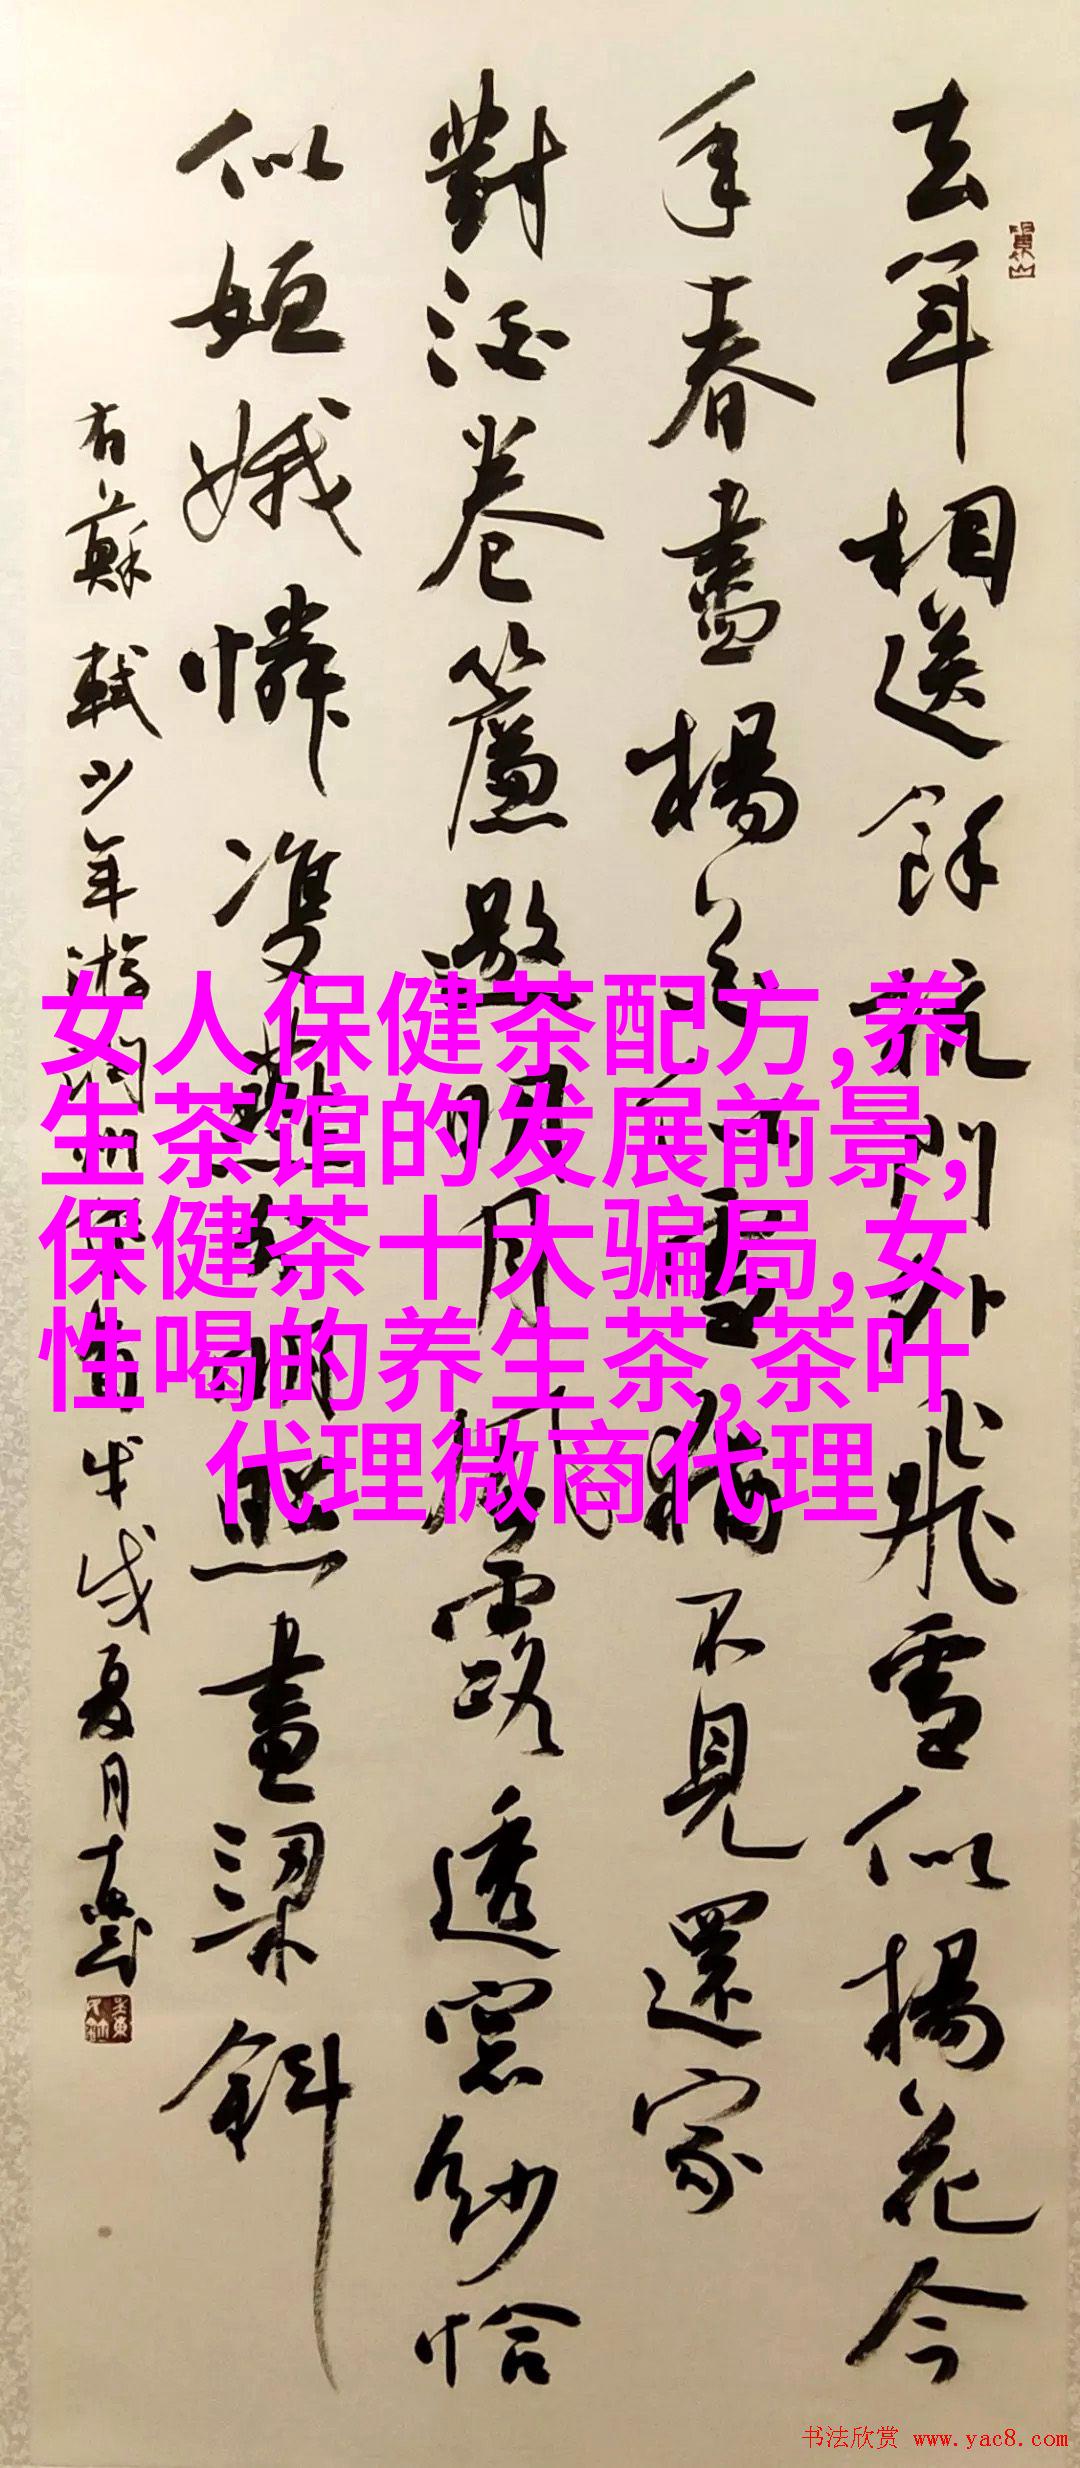 去年相送餘杭門外飛雪似楊花今
年春盡楊花似雪猶不見還家
對酒卷簾邀明月風露透窗紗恰
似姮娥憐雙燕分明照畫梁斜
右蘇軾少年游潤州 戊戌夏月
女人保健茶配方,养
生茶馆的发展前景,
保健茶十大骗局,女
性喝的养生茶,茶叶
代理微商代理
书法欣赏 www.yac8.com